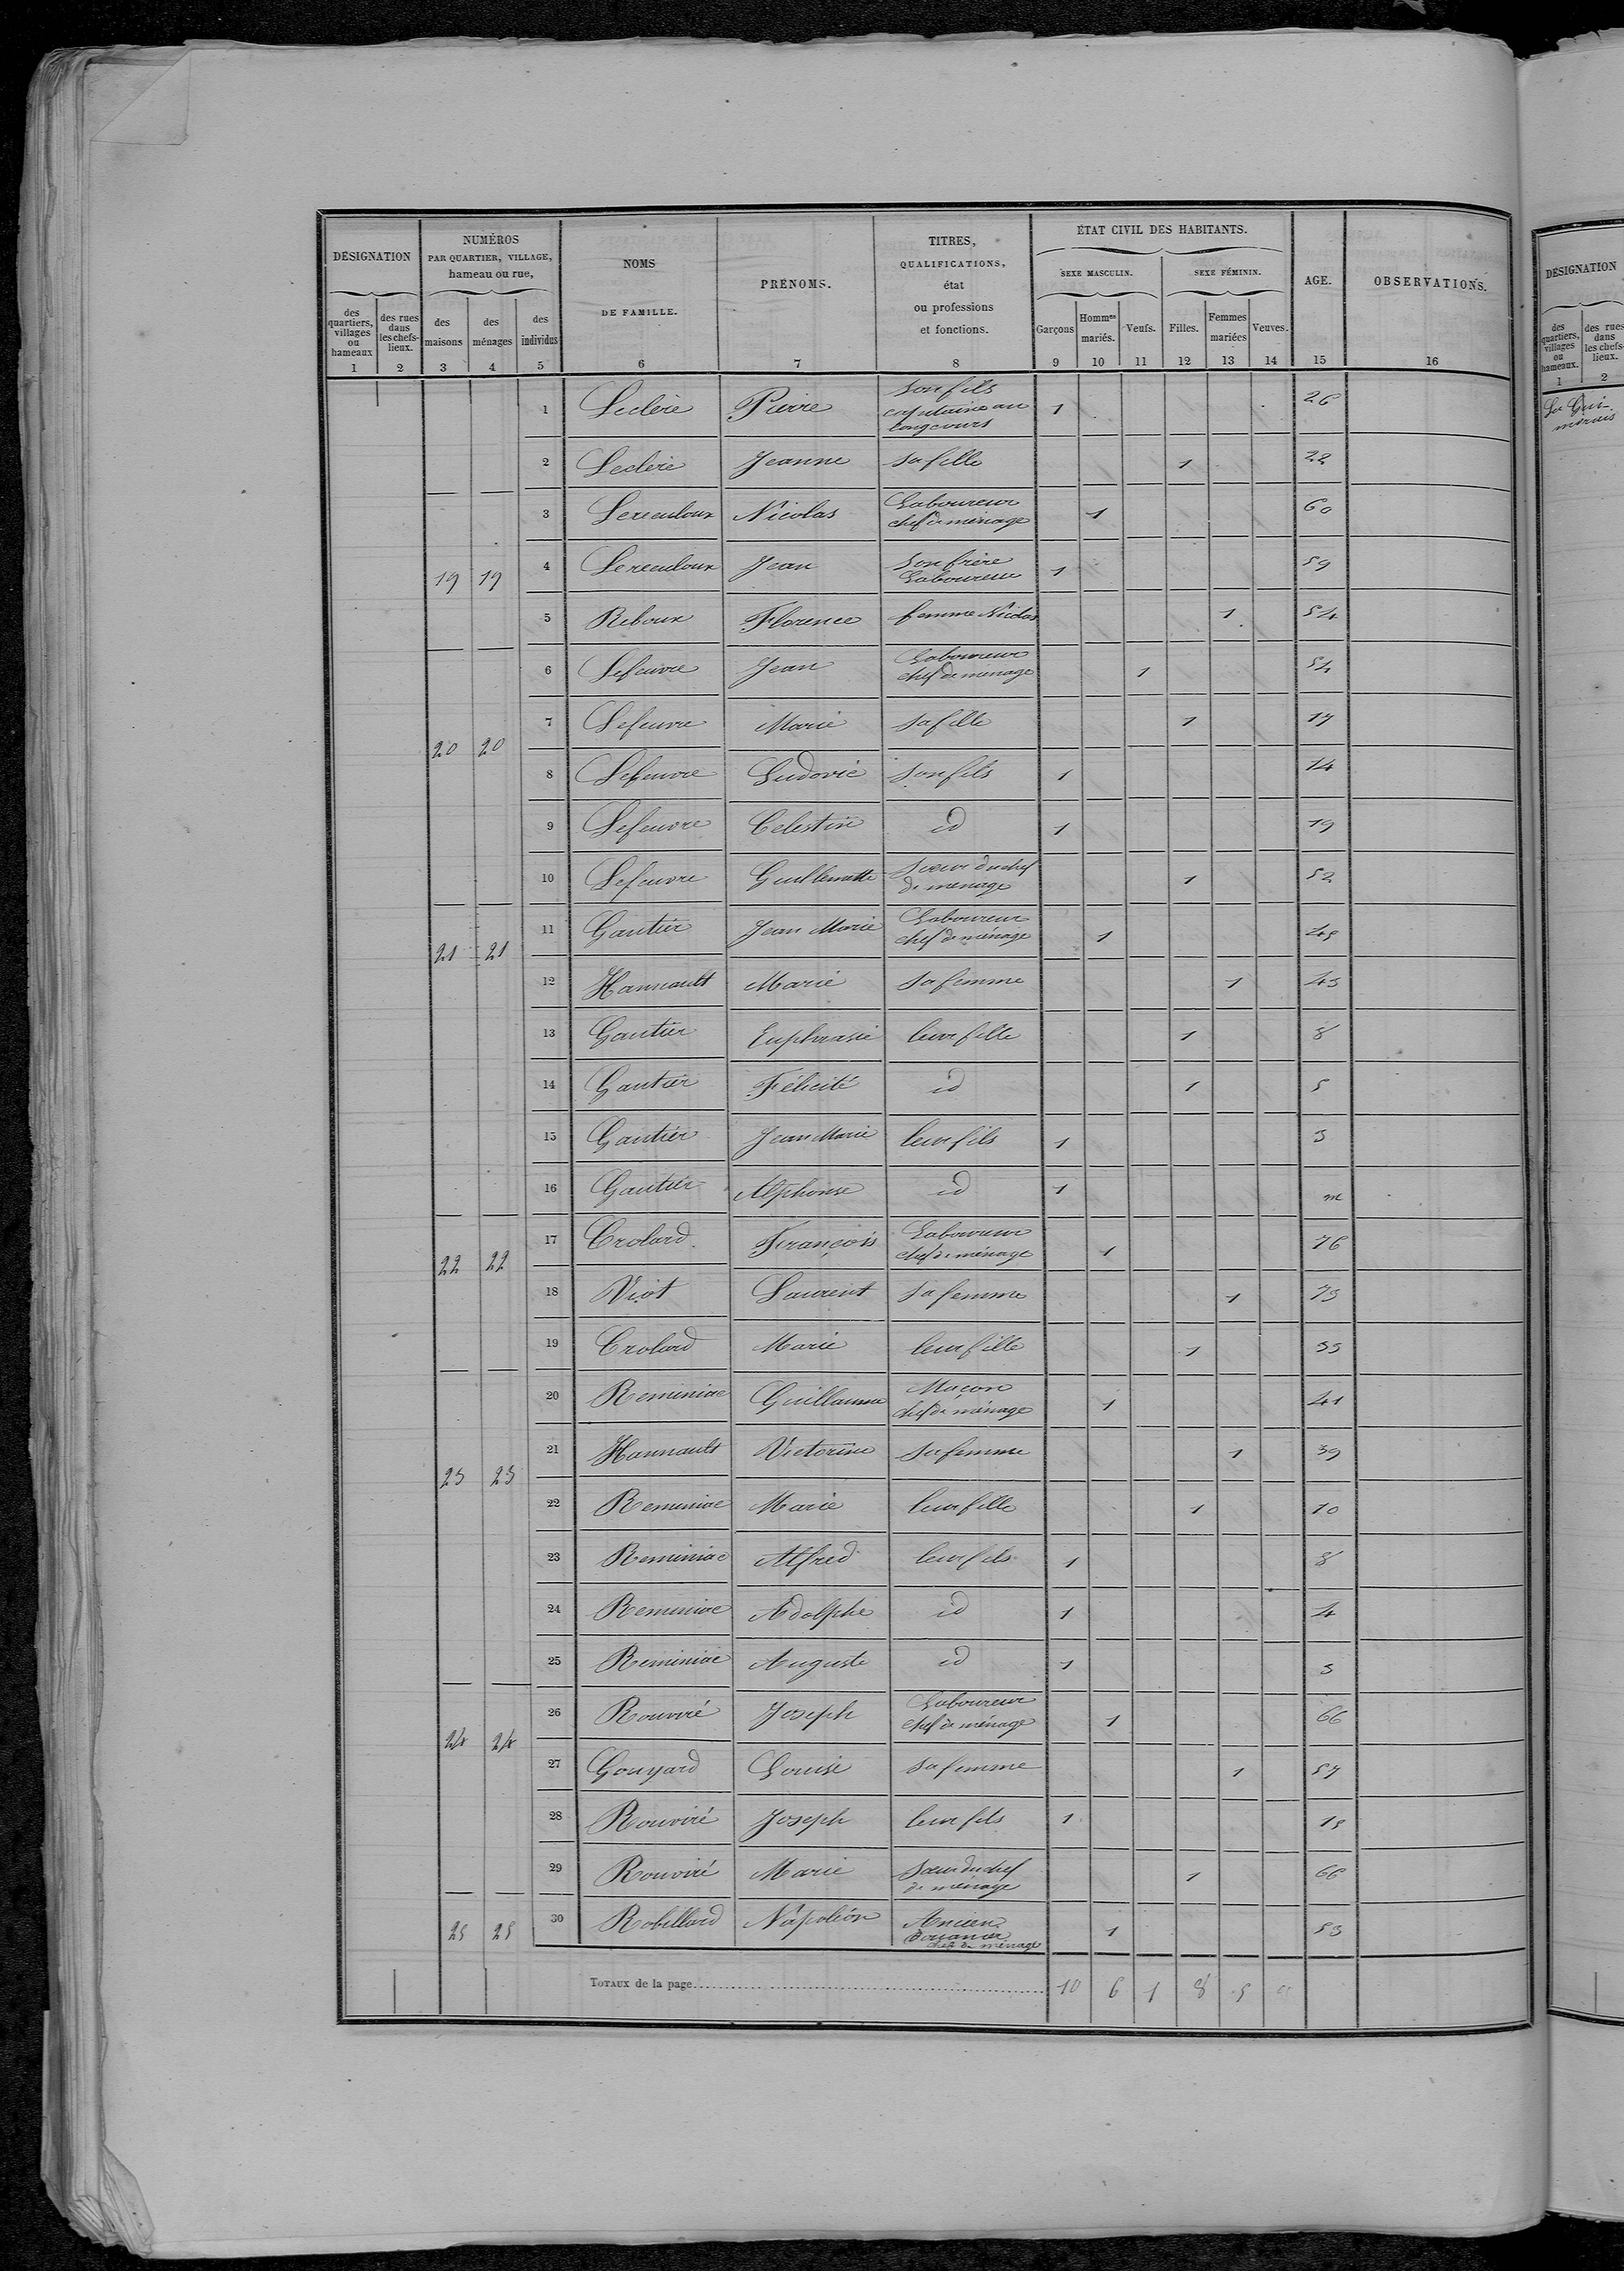 DÉSIGNATION
des quartiers, villages ou hameaux
des rues dans les chefs-lieux.
NUMÉROS
PAR QUARTIER, VILLAGE,
hameau ou rue,
des maisons
des ménages
des individus
NOMS
DE FAMILLE.
PRÉNOMS.
TITRES,
QUALIFICATIONS,
état
ou professions
et fonctions.
ÉTAT CIVIL DES HABITANTS.
SEXE MASCULIN.
SEXE FÉMININ.
Garçons
Hommes mariés.
Veufs.
Filles.
Femmes mariées
Veuves.
AGE.
OBSERVATIONS.
1 2 3 4 5 6 7 8 9 10 11 12 13 14 15 16
1 Leclère Pierre son fils capitaine au long cours 1 26
2 Leclère Jeanne sa fille 1 22
3 Nicolas Laboureur chef de ménage 1 60
19 19 4 Jean son frère Laboureur 1 59
5 Reboux Florence femme Nicolas 1 54
6 Lefeuvre Jean Laboureur chef de ménage 1 54
7 Lefeuvre Marie sa fille 1 17
20 20 8 Lefeuvre Ludovic son fils 1 14
9 Lefeuvre Celestin id 1 19
10 Lefeuvre Guillemette Sœur du chef de ménage 1 52
21 21 11 Gautier Jean Marie Laboureur chef de ménage 1 45
12 Hannault Marie sa femme 1 43
13 Gautier Euphrasie leur fille 1 8
14 Gautier Félicité id 1 5
15 Gautier Jean Marie leur fils 1 3
16 Gautier Alphonse id 1 m
22 22 17 Crolard François Laboureur chef de ménage 1 76
18 Viot Laurent sa femme 1 73
19 Crolard Marie leur fille 1 33
20 Reminiac Guillaume Maçon chef de ménage 1 41
23 23 21 Hannault Victorine sa femme 1 39
22 Reminiac Marie leur fille 1 10
23 Reminiac Alfred leur fils 1 8
24 Reminiac Adolphe id 1 4
25 Reminiac Auguste id 1 3
24 24 26 Rouviré Joseph Laboureur chef de ménage 1 66
27 Gouyard Louise sa femme 1 57
28 Rouviré Joseph leur fils 1 15
29 Rouviré Marie Sœur du chef de ménage 1 66
25 25 30 Robillard Napoléon Ancien Douanier chef de ménage 1 53
TOTAUX de la page 10 6 1 8 5
DÉSIGNATION
des quartiers, villages ou hameaux.
des rues dans les chefs-lieux.
1 2